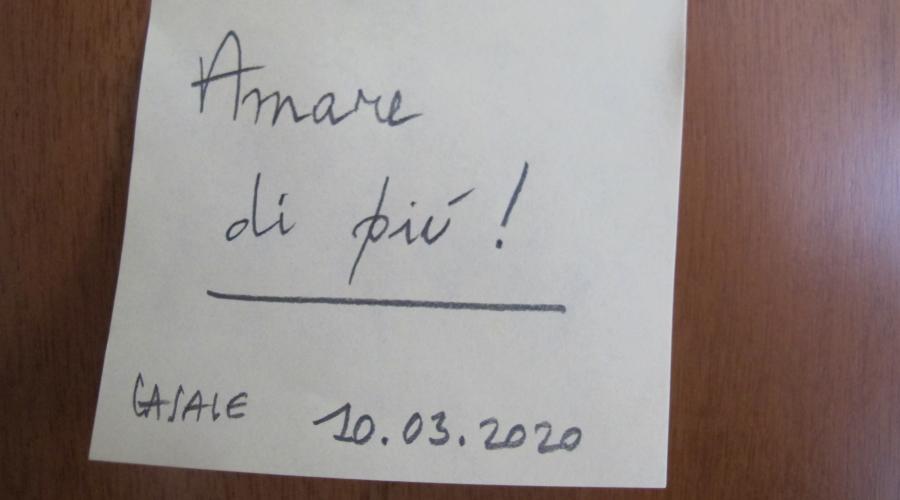 Amare
di piú!
CASALE 10.03.2020